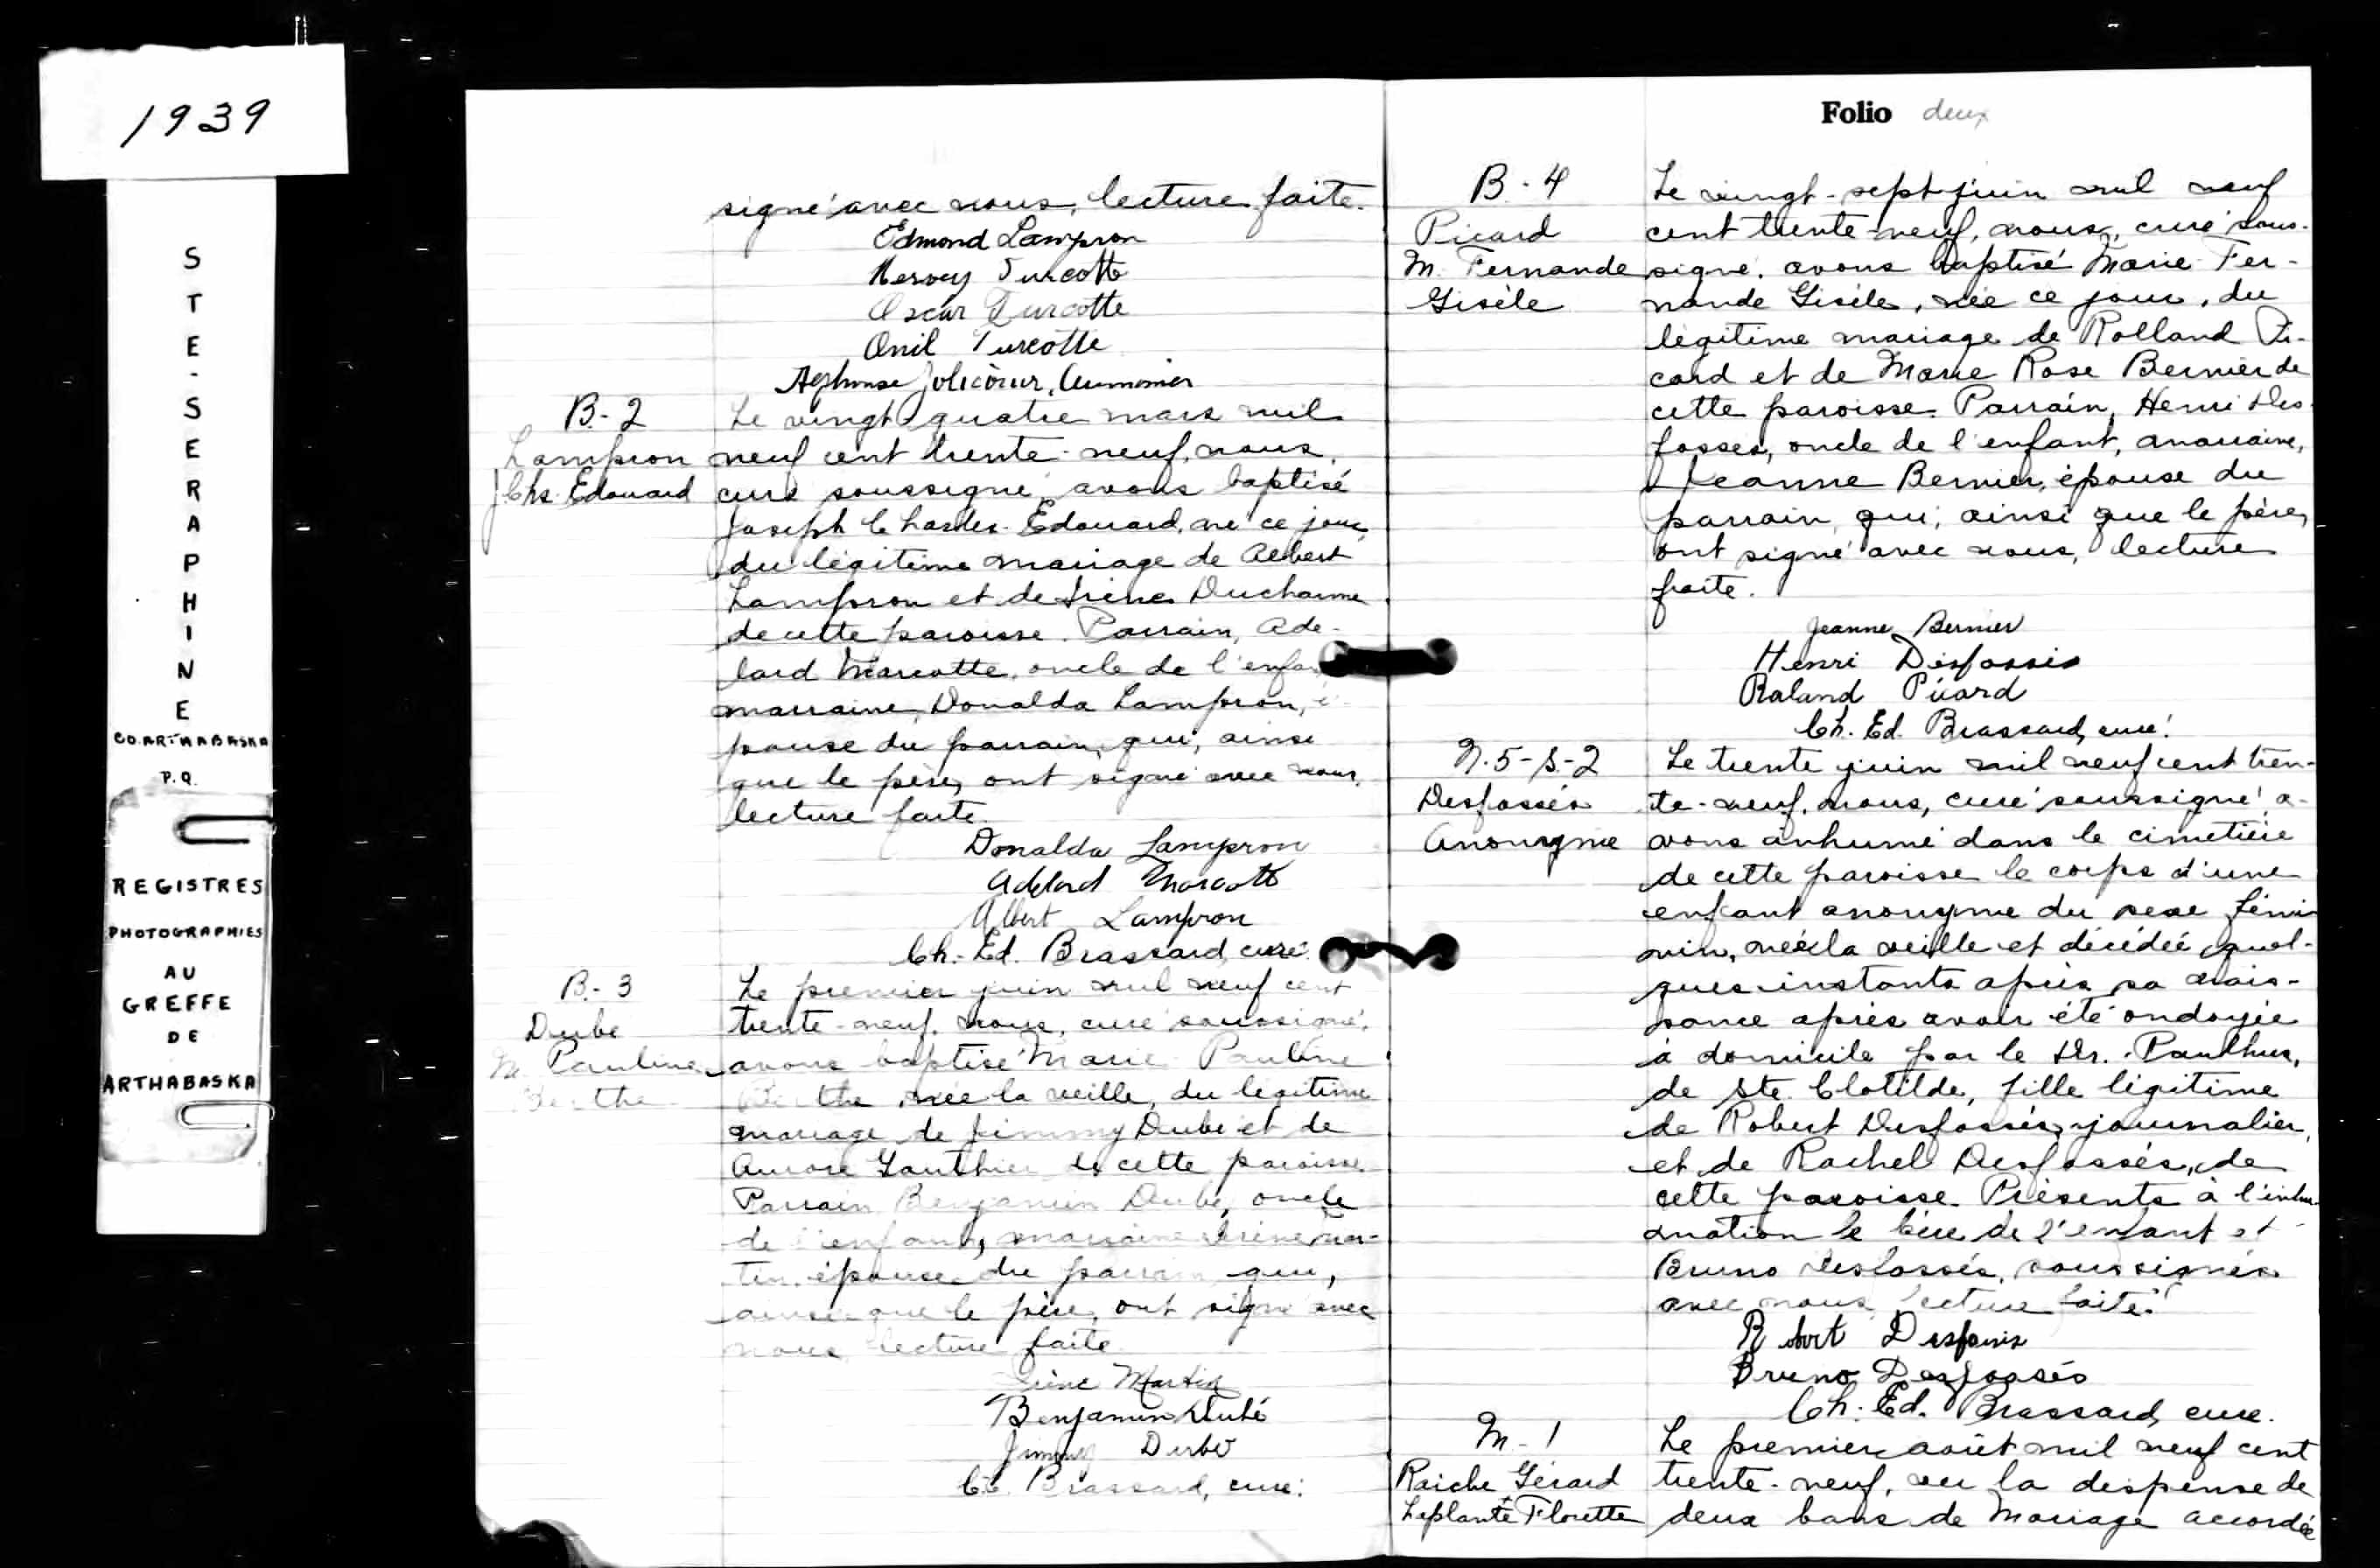 1939
STE-SERAPHINE
CO. ARTHABASKA
P.Q.
REGISTRES
PHOTOGRAPHIES
AU
GREFFE
DE
ARTHABASKA
signé avec nous, lecture faite.
Edmond Lampron
Hervey Turcotte
Oscar Turcotte
Onil Turcotte
Alphonse Jolicoeur, Aumonier
B.-2
Lampron
J. Chs. Edouard
Le vingt quatre mars mil
neuf cent trente-neuf, nous,
curé soussigné, avons baptisé
Joseph Charles-Edouard, né ce jour,
du légitime mariage de Albert
Lampron et de Irène Ducharme
de cette paroisse. Parrain, Ade-
lard Marcotte, oncle de l'enfan
marraine, Donalda Lampron, é-
pouse du parrain, qui, ainsi
que le père, ont signé avec nous,
lecture faite.
Donalda Lampron
Adelard Marcotte
Albert Lampron
Ch.-Ed. Brassard, curé.
B.-3
Dubé
M. Pauline
Berthe
Le premier juin mil neuf cent
trente-neuf, nous, curé soussigné,
avons baptisé Marie Pauline
Berthe, née la veille, du légitime
mariage de Jimmy Dubé et de
Aurore Gauthier de cette paroisse.
Parrain Benjamin Dubé, oncle
de l'enfant, marraine Irène Mar-
tin, épouse du parrain qui,
ainsi que le père, ont signé avec
nous lecture faite
Irène Martin
Benjamin Dubé
Jimmy Dubé
C.E. Brassard, curé.
Folio deux
B.-4
Picard
M. Fernande
Gisèle
Le vingt-sept juin mil neuf
cent trente-neuf, nous, curé sous-
signé, avons baptisé Marie-Fer-
nande Gisèle, née ce jour, du
légitime mariage de Rolland Pi-
card et de Marie Rose Bernier de
cette paroisse. Parrain, Henri Des-
fossés, oncle de l'enfant, marraine,
Jeanne Bernier, épouse du
parrain, qui, ainsi que le père,
ont signé avec nous, lecture
faite.
Jeanne Bernier
Henri Desfossés
Roland Picard
Ch. Ed. Brassard, curé.
N.5-S-2
Desfossés
Anonyme
Le trente juin mil neuf cent tren-
te-neuf, nous, curé soussigné a-
vons inhumé dans le cimetière
de cette paroisse le corps d'une
enfant anonyme du sexe fémi-
nin, née la veille et décédée quel-
ques instants après sa nais-
sance après avoir été ondoyée
à domicile par le Dr. Paulhus,
de Ste. Clotilde, fille légitime
de Robert Desfossés, journalier,
et de Rachel Desfossés, de
cette paroisse. Présents à l'inhu-
mation le père de l'enfant et
Bruno Desfossés, soussignés
avec nous, lecture faite.
Robert Desfossés
Bruno Desfossés
Ch. Ed. Brassard, curé.
M.-1
Raiche Gérard
+
Laplante Florette
Le premier août mil neuf cent
trente-neuf, vu la dispense de
deux bans de mariage accordée